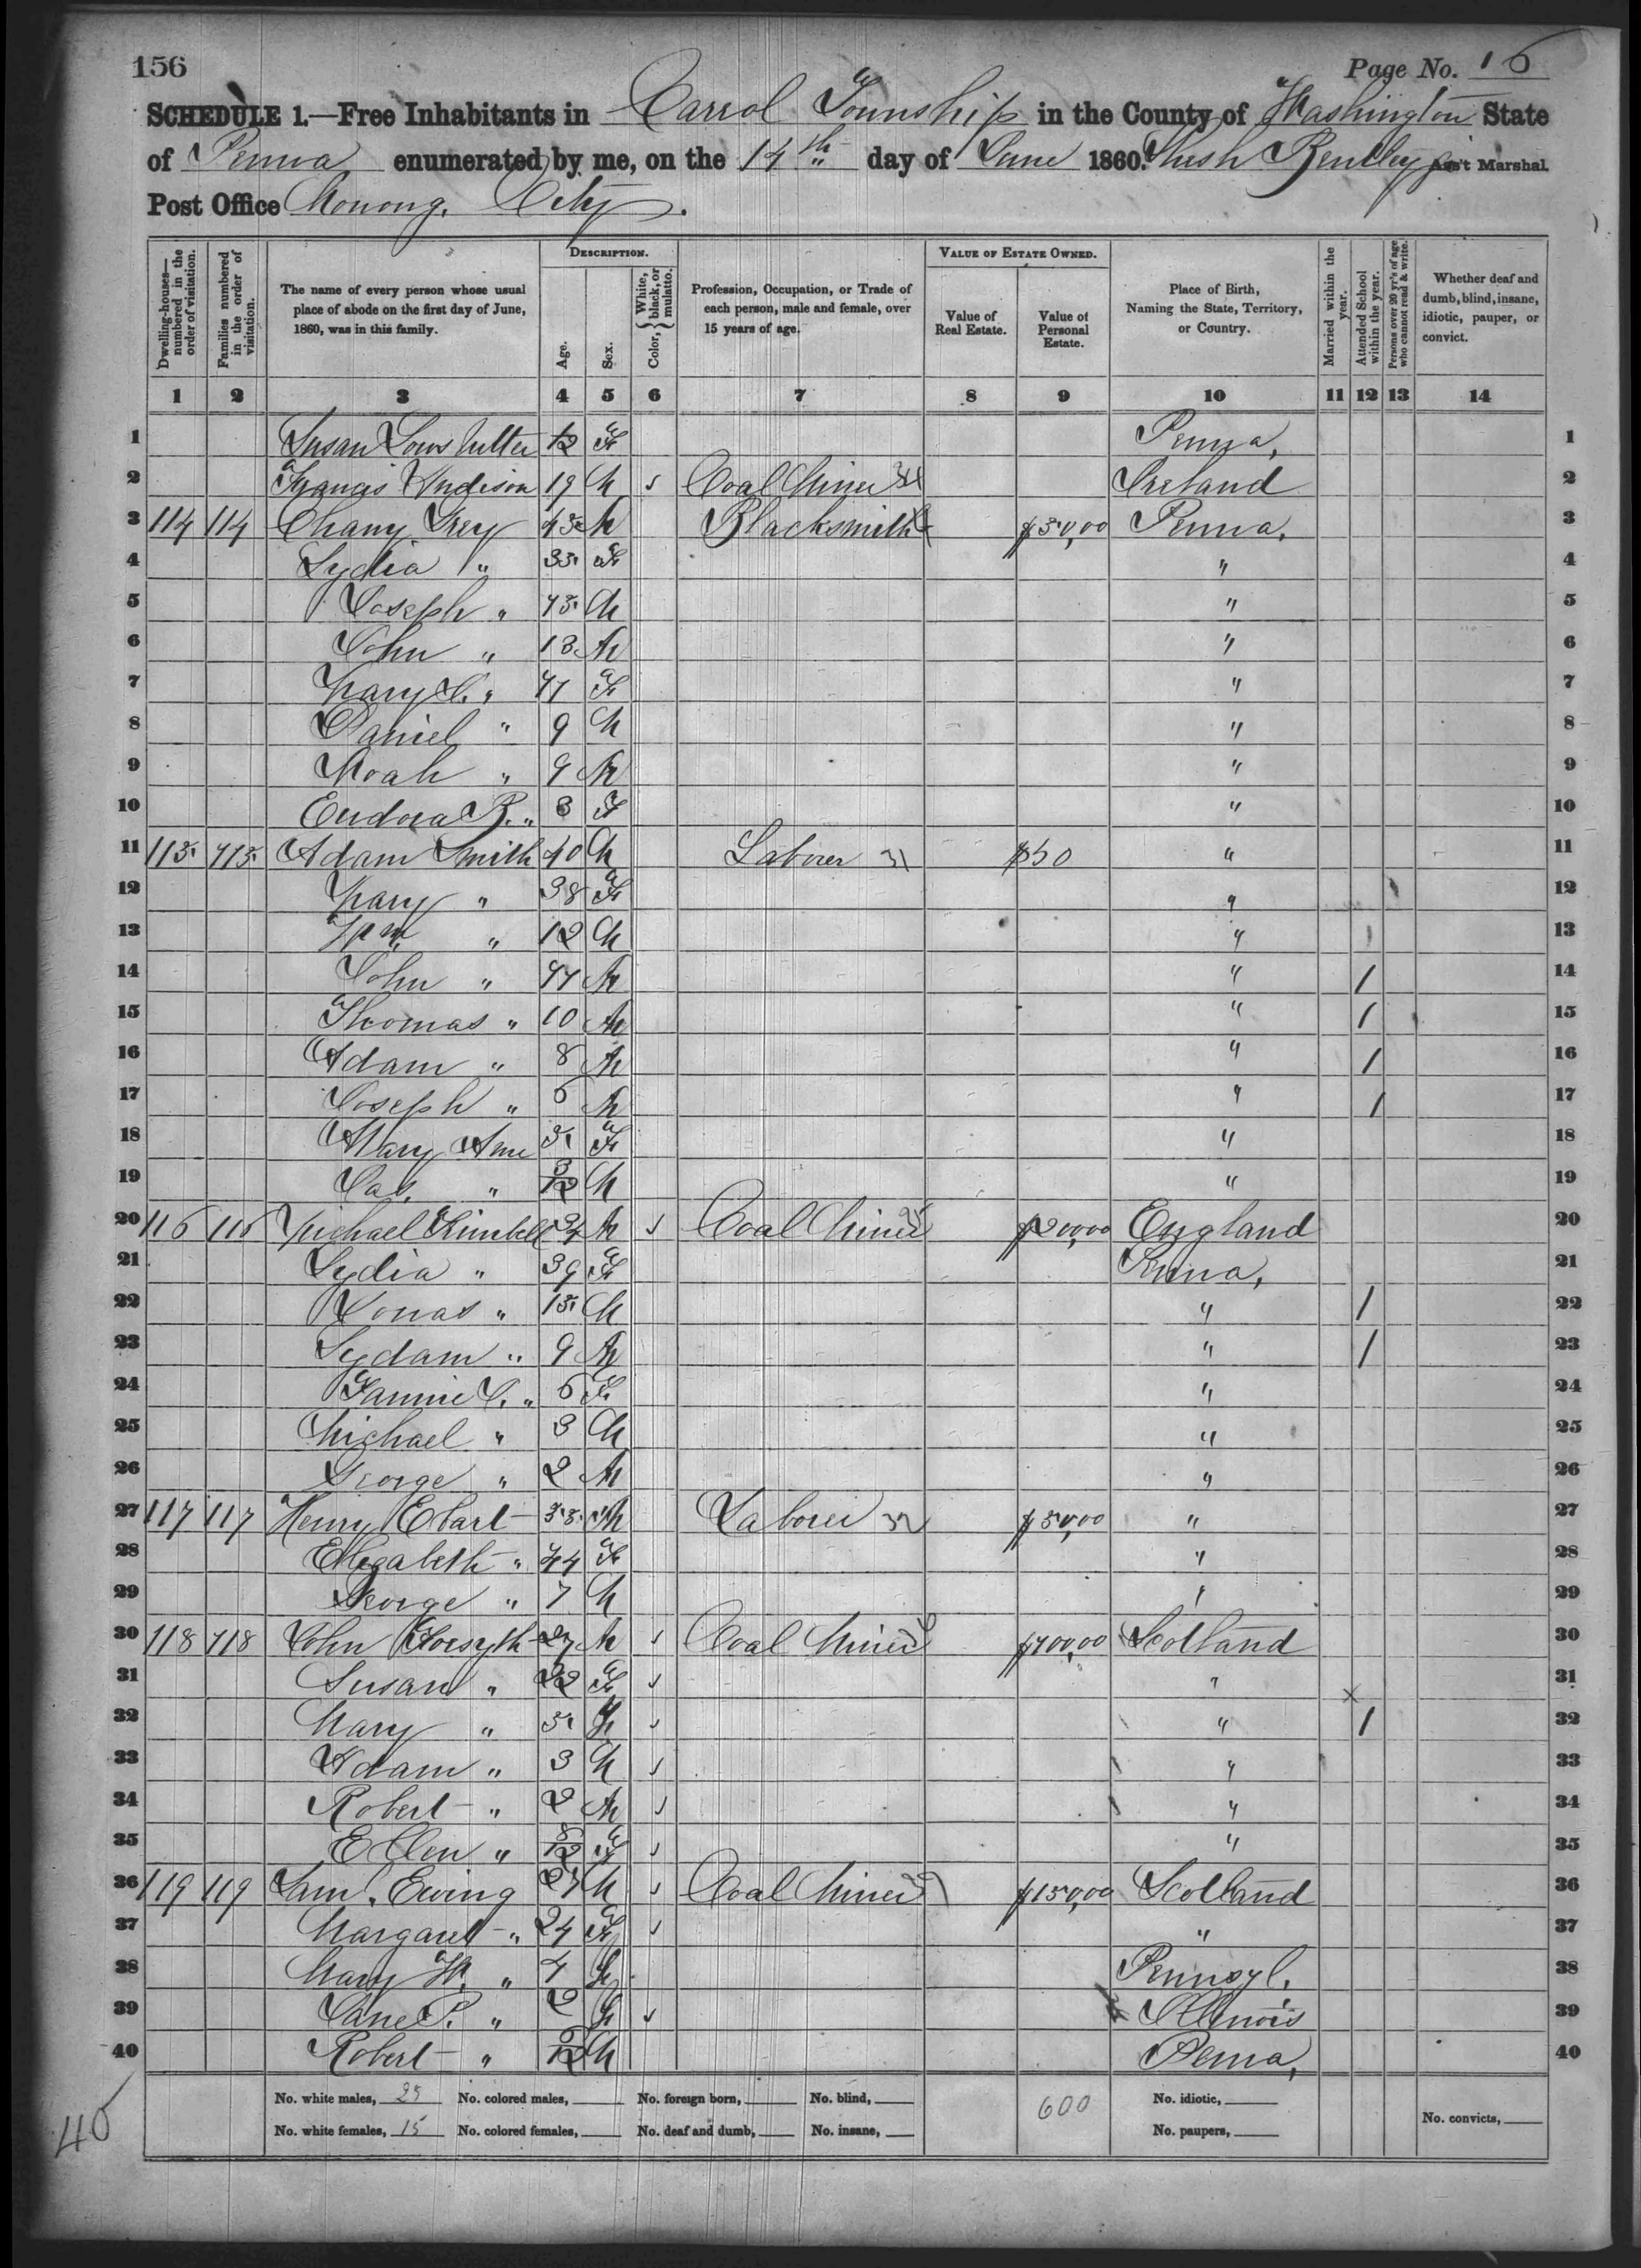 156
Page No. 16
SCHEDULE 1.—Free Inhabitants in Carrol Township in the County of Washington State
of Penna enumerated by me, on the 14th day of June 1860. Bentley Ass't Marshal.
Post Office Monong. City.
Dwelling-houses—numbered in the order of visitation.
Families numbered in the order of visitation.
The name of every person whose usual place of abode on the first day of June, 1860, was in this family.
DESCRIPTION.
Age.
Sex.
Color, { White, black, or mulatto.
Profession, Occupation, or Trade of each person, male and female, over 15 years of age.
VALUE OF ESTATE OWNED.
Value of Real Estate.
Value of Personal Estate.
Place of Birth, Naming the State, Territory, or Country.
Married within the year.
Attended School within the year.
Persons over 20 yr's of age who cannot read & write.
Whether deaf and dumb, blind, insane, idiotic, pauper, or convict.
1 2 3 4 5 6 7 8 9 10 11 12 13 14
1 Susan F Penna, 1
2 Francis 19 M Coal Miner Ireland 2
3 114 114 Grey 45 M Blacksmith $50,00 Penna. 3
4 Lydia " 35 F " 4
5 Joseph " 15 M " 5
6 John " 13 M " 6
7 Mary " 11 F " 7
8 Daniel " 9 M " 8
9 Noah " 9 M " 9
10 Eudora B. " 3 F " 10
11 115 115 Adam Smith 40 M Laborer 31 $50 " 11
12 Mary " 38 F " 12
13 Wm " 12 M " 13
14 John " 11 M " / 14
15 Thomas " 10 M " / 15
16 Adam " 8 M " / 16
17 Joseph " 6 M " / 17
18 Mary Ann 5 F " 18
19 Jas. " 3/12 M " 19
20 116 116 Michael Kimbell 34 M Coal Miner $200,00 England 20
21 Lydia " 39 F Penna, 21
22 Jonas " 15 M " / 22
23 Sydam " 9 M " / 23
24 Fannie " 6 F " 24
25 Michael " 3 M " 25
26 George " 2 M " 26
27 117 117 Henry Ebart 55 M Laborer $50,00 " 27
28 Elizabeth " 44 F " 28
29 George " 7 M " 29
30 118 118 John Forsyth 27 M Coal Miner $100,00 Scotland 30
31 Susan " 22 F " 31
32 Mary " 5 F " / 32
33 Adam " 3 M " 33
34 Robert " 2 M " 34
35 Ellen " 8/12 F " 35
36 119 119 Saml. Ewing M Coal Miner $150,00 Scotland 36
37 Margaret " 24 F " 37
38 Mary W. " 4 F Pennsyl. 38
39 Jane P. " 2 F Illinois 39
40 Robert " M Penna, 40
No. white males, 25 No. colored males, No. foreign born, No. blind, 600 No. idiotic,
No. white females, 15 No. colored females, No. deaf and dumb, No. insane, No. paupers, No. convicts,
40